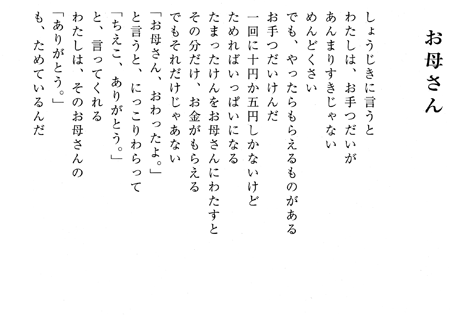 お母さん
しょうじきに言うと
わたしは、お手つだいが
あんまりすきじゃない
めんどくさい
でも、やったらもらえるものがある
お手つだいけんだ
一回に十円か五円しかないけど
ためればいっぱいになる
たまったけんをお母さんにわたすと
その分だけ、お金がもらえる
でもそれだけじゃあない
「お母さん、おわったよ。」
と言うと、にっこりわらって
「ちえこ、ありがとう。」
と、言ってくれる
わたしは、そのお母さんの
「ありがとう。」
も、ためているんだ